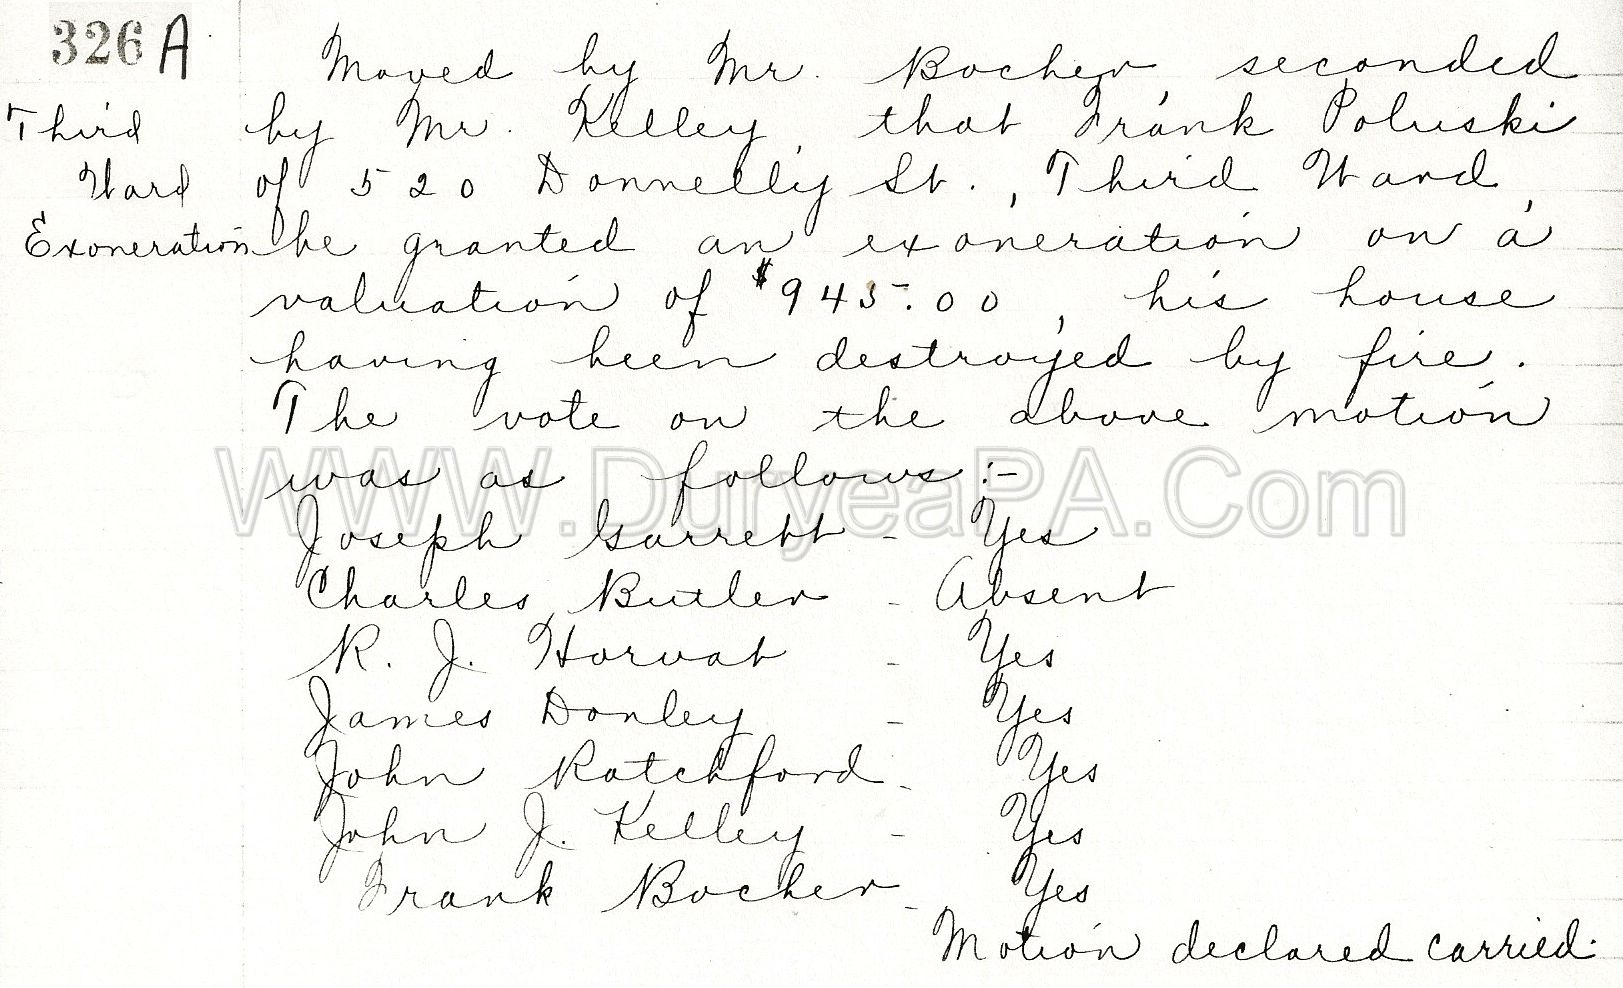 326 A
Moved by Mr. Bocher, seconded
Third
by Mr. Kelley, that Frank Poluski
Ward
of 520 Donnelly St., Third Ward,
Exoneration
be granted an exoneration on a
valuation of $945.00, his house
having been destroyed by fire.
The vote on the above motion
was as follows:-
WWW.DuryeaPA.Com
Joseph Garrett - Yes
Charles Butler - Absent
R. J. Horvat - Yes
James Donley - Yes
John Ratchford - Yes
John J. Kelley - Yes
Frank Bocher - Yes
Motion declared carried.